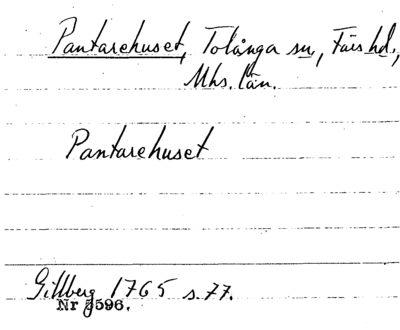 Pantarehuset, Tolånga sn., Färs hd.,
Mhs. län.
Pantarehuset
Gillberg 1765 s.77.
Nr 3596.